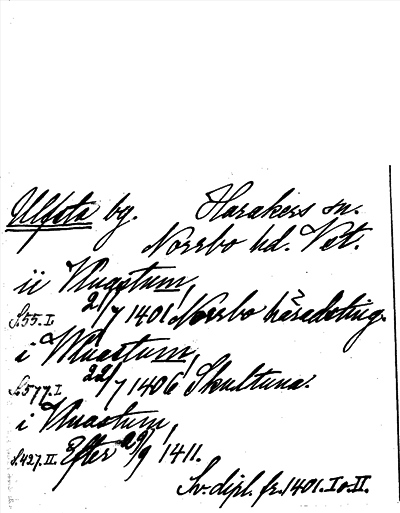 Ulfsta by. Harakers sn.
Norrbo hd. Vst.
ii Vluastum,
S.55.I 2/7 1401 Norrbo häradsting.
i Wluastum,
S.577.I 22/7 1406 Skultuna.
i Vluastum,
S.427.II. Efter 29/9 1411.
Sv. dipl. fr. 1401. I o. II.